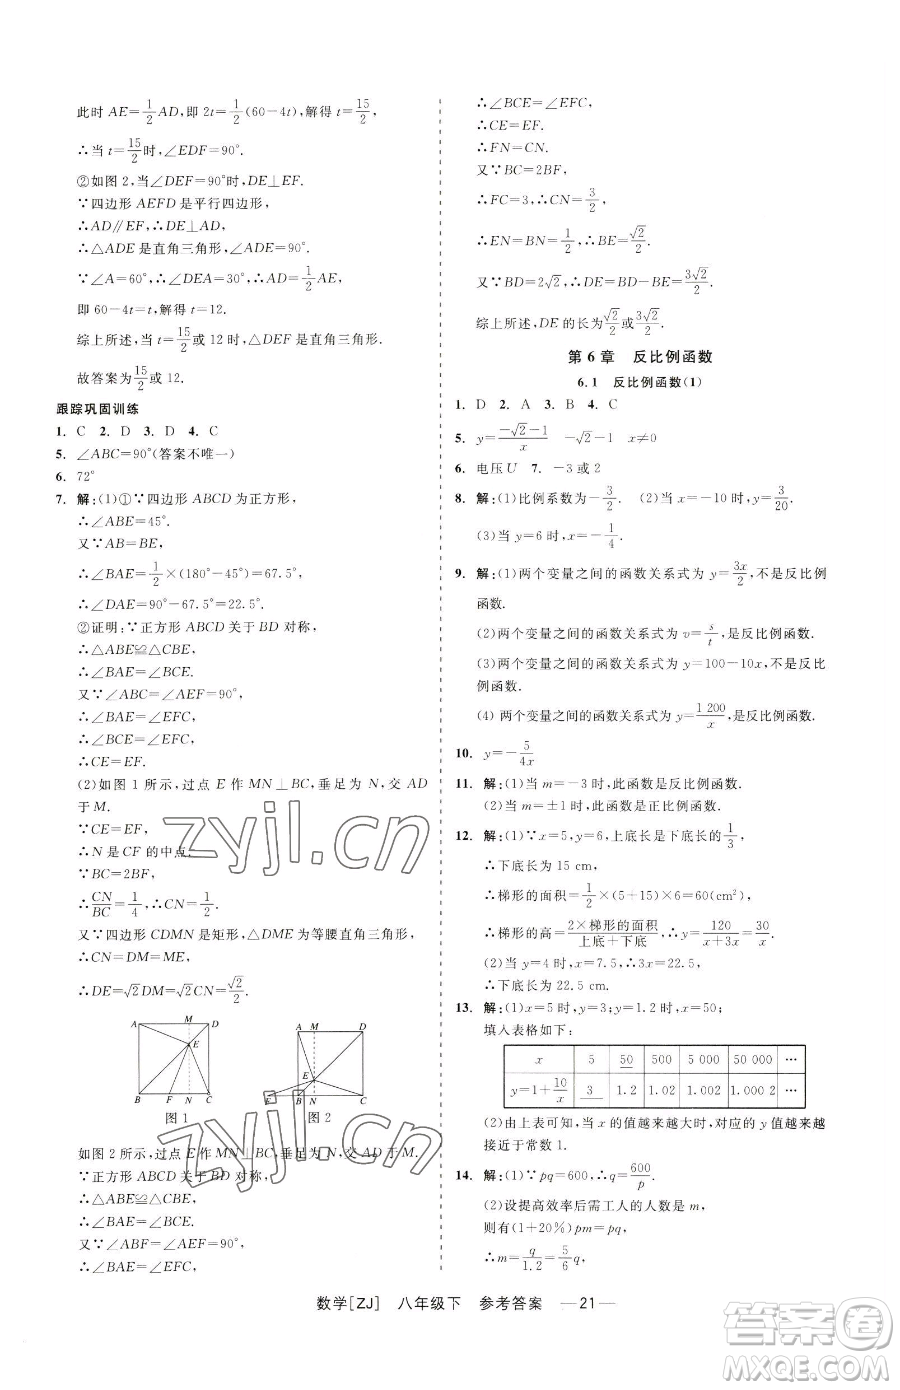 此时 AE=1/2AD,即 2t=1/2(60-4t),解得 t=15/2,
∴当 t=15/2时,∠EDF=90°.
②如图 2,当∠DEF=90°时,DE⊥EF.
∵四边形 AEFD 是平行四边形,
∴AD∥EF,∴DE⊥AD,
∴△ADE 是直角三角形,∠ADE=90°.
∵∠A=60°,∴∠DEA=30°,∴AD=1/2AE,
即 60-4t=t,解得 t=12.
综上所述,当 t=15/2或 12 时,△DEF 是直角三角形.
故答案为15/2或 12.
跟踪巩固训练
1. C 2. D 3. D 4. C
5. ∠ABC=90°(答案不唯一)
6. 72°
7. 解:(1)①∵四边形 ABCD 为正方形,
∴∠ABE=45°.
又∵AB=BE,
∴∠BAE=1/2×(180°-45°)=67.5°,
∴∠DAE=90°-67.5°=22.5°.
②证明:∵正方形 ABCD 关于 BD 对称,
∴△ABE≌△CBE,
∴∠BAE=∠BCE.
又∵∠ABC=∠AEF=90°,
∴∠BAE=∠EFC,
∴∠BCE=∠EFC,
∴CE=EF.
(2)如图 1 所示,过点 E 作 MN⊥BC,垂足为 N,交 AD
于 M.
∵CE=EF,
∴N 是 CF 的中点.
∵BC=2BF,
∴CN/BC=1/4,∴CN=1/2.
又∵四边形 CDMN 是矩形,△DME 为等腰直角三角形,
∴CN=DM=ME,
∴DE=√2DM=√2CN=√2/2.
A M D E B F N C
A M D E F B N C
图 1 图 2
如图 2 所示,过点 E 作 MN⊥BC,垂足为 N,交 AD 于 M.
∵正方形 ABCD 关于 BD 对称,
∴△ABE≌△CBE,
∴∠BAE=∠BCE.
又∵∠ABF=∠AEF=90°,
∴∠BAE=∠EFC,
∴∠BCE=∠EFC,
∴CE=EF.
∴FN=CN.
又∵BC=2BF,
∴FC=3,∴CN=3/2,
∴EN=BN=1/2,∴BE=√2/2.
又∵BD=2√2,∴DE=BD-BE=3√2/2.
综上所述,DE 的长为√2/2或3√2/2.
第 6 章 反比例函数
6.1 反比例函数(1)
1. D 2. A 3. B 4. C
5. y=(-√2-1)/x -√2-1 x≠0
6. 电压 U 7. -3 或 2
8. 解:(1)比例系数为-3/2. (2)当 x=-10 时,y=3/20.
(3)当 y=6 时,x=-1/4.
9. 解:(1)两个变量之间的函数关系式为 y=3x/2,不是反比例
函数.
(2)两个变量之间的函数关系式为 v=s/t,是反比例函数.
(3)两个变量之间的函数关系式为 y=100-10x,不是反比
例函数.
(4)两个变量之间的函数关系式为 y=1 200/x,是反比例函数.
10. y=-5/4x
11. 解:(1)当 m=-3 时,此函数是反比例函数.
(2)当 m=±1 时,此函数是正比例函数.
12. 解:(1)∵x=5,y=6,上底长是下底长的1/3,
∴下底长为 15 cm,
∴梯形的面积=1/2×(5+15)×6=60(cm²)
∴梯形的高=2×梯形的面积/上底+下底,∴y=120/x+3x=30/x.
(2)当 y=4 时,x=7.5,∴3x=22.5,
∴下底长为 22.5 cm.
13. 解:(1)x=5 时,y=3;y=1.2 时,x=50;
填入表格如下:
x 5 50 500 5 000 50 000 …
y=1+10/x 3 1.2 1.02 1.002 1.000 2 …
(2)由上表可知,当 x 的值越来越大时,对应的 y 值越来越
接近于常数 1.
14. 解:(1)∵pq=600,∴q=600/p.
(2)设提高效率后需工人的人数是 m,
则有(1+20%)pm=pq,
∴m=q/1.2=5/6q,
数学[ZJ] 八年级下 参考答案 —21—
zyjl.cn
zyjl.cn
答案圈
MXQE.COM